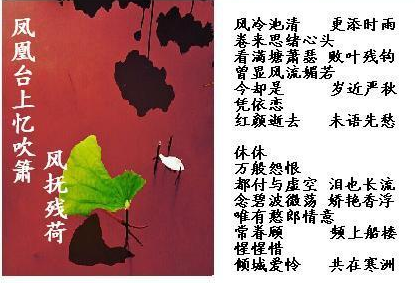 凤凰台上忆吹箫
风抚残荷
风冷池清 更添时雨
卷来思绪心头
看满塘萧瑟 败叶残钩
曾显风流媚若
今却是 岁近严秋
凭依恋
红颜逝去 未语先愁
休休
万般怨恨
都付与虚空 泪也长流
念碧波微荡 娇艳香浮
唯有愁郎情意
常眷顾 频上船楼
惺惺惜
倾城爱怜 共在寒洲